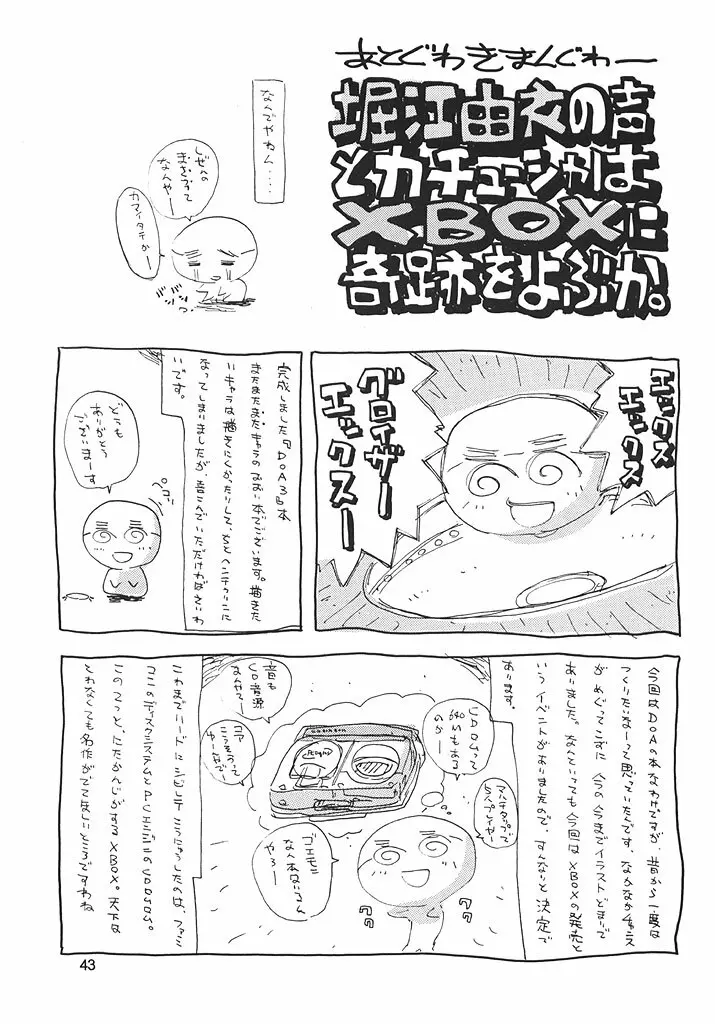 あとぐわきまんぐわー
堀江由衣の声
とカチューシャは
XBOXに
奇跡をよぶか。
なんでやねん....
しぜんの
まえぶって
なんやー
カマイタチかー
エックス
エックス
グロイザー
エックスー
完成しました『DOA3』本
またまたまたキャラのみの本でございます。描きた
いキャラは描きにくかったりして、ちとヘンテコリンに
なってしまいましたが、喜こんでいただければさいわ
いです。
どうも
ありがとう
ございまーす
今回はDOAの本なわけですが、昔から一度は
つくりたいなーって思っていたんです。なかなかチャンス
がめぐってこずに今の今までイラストどまりで
ありました。なんといっても今回はXBOXの発売と
いうイベントがありましたので、すんなりと決定で
あります。
CDROMって
540Mもある
のかー
マルチタップで
5人プレイヤー
音も
CD音源
なんやてー
コア
こうそうって
ゆーなで
ゴエモン
なん本はいるん
やろー
これまでハードにシビレてこうにゅうしたのは、ファミ
コンのディスクシステムとPCエンジンのCDロムロム。
このてっと、にたかんじがするXBOX。天下は
とれなくても名作がでてほしいところですわね
43